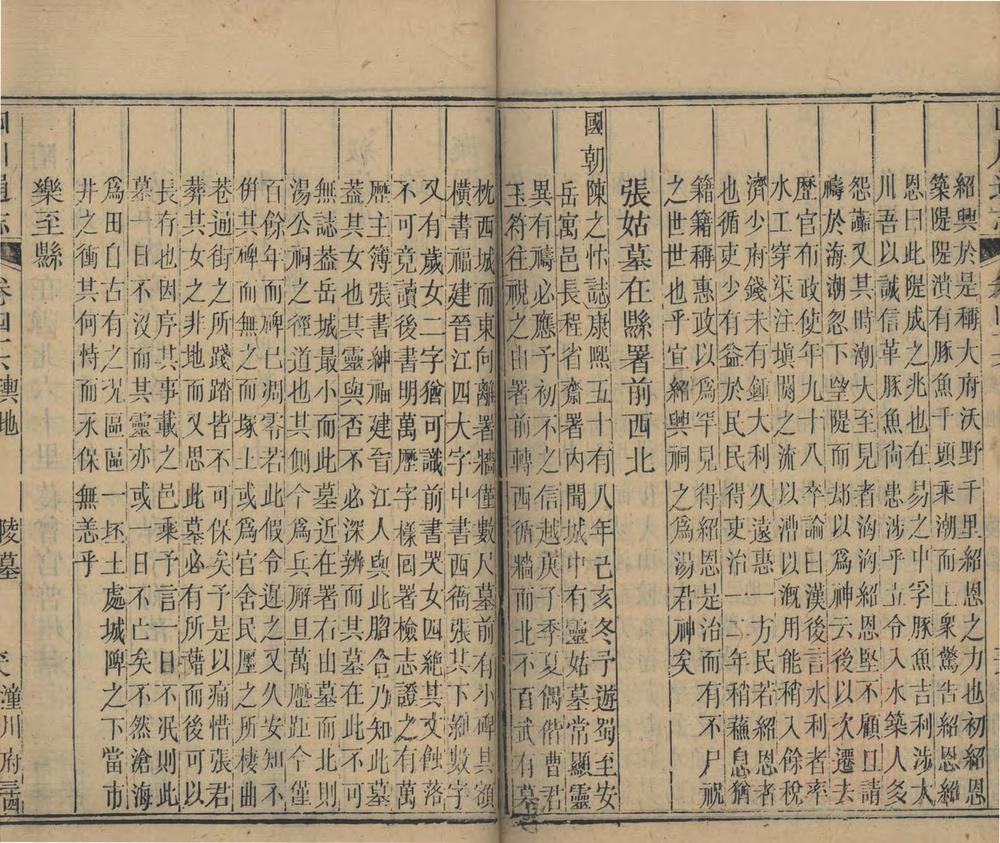 紹興於是稱大府沃野千里紹恩之力也初紹恩
築隄隄潰有豚魚千頭乘潮而上衆驚告紹恩紹
恩曰此隄成之兆也在易之中孚豚魚吉利涉大
川吾以誠信革豚魚尚患涉乎立令入水築人多
怨讟又其時潮大至見者洶洶紹恩堅不顧且請
禱於海潮忽下堅隄而却以爲神云後以次遷去
歷官布政使年九十八卒論曰漢後言水利者率
水工穿渠注塡閼之流以漕以漑用能稍入餘稅
濟少府錢未有鍾大利久遠惠一方民若紹恩者
也循吏少有益於民民得吏治一二年稍蘇息猶
籍籍稱惠政以爲罕見得紹恩是治而有不尸祝
之世世也乎宜紹興祠之爲湯君神矣
張姑墓在縣署前西北
國朝陳之怵誌康熙五十有八年己亥冬予遊蜀至安
岳寓邑長程省齋署內聞城中有靈姑墓常顯靈
異有禱必應予初不之信越庚子季夏偶偕曹君
玉符往視之由署前轉西循牆而北不百武有墓
枕西城而東向離署牆僅數人墓前有小碑其額
橫書福建晉江四大字中書西衙張其下細數字
又有歲女二字猶可識前書哭女四絶其文蝕落
不可竟讀後書明萬曆字樣囘署檢志證之有萬
曆主簿張書紳福建晉江人與此脗合乃知此墓
蓋其女也其靈與否不必深辨而其墓在此不可
無誌葢岳城最小而此墓近在署右由墓而北則
湯公祠之徑道也其側今爲兵廨且萬曆距今僅
百餘年而碑已凋零若此假令遲之又久安知不
倂其碑而無之塚上或爲官舍民廛之所棲曲
巷通街之所踐踏皆不可保矣予是以痛惜張君
葬其女之非地而又思此墓必有所藉而後可以
長存也因序其事載之邑乘予言一日不泯則此
墓一日不沒而其靈亦或一日不亡矣不然滄海
爲田自古有之况區區一抔土處城陴之下當市
井之衝其何恃而永保無恙乎
樂至縣
卷四十六輿地
陵墓
潼川府